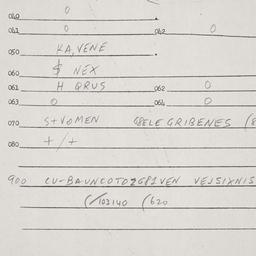 040 0
041 0 042 0
050 KA, VENE
060 $ NEX
061 H QRUS 062 0
063 0 064 0
070 S+VOMEN GBELE GRIBENES (8
080 +/+
900 CU-BAUNCOTO2GP1VEN VEJSIXNIS
(/103140 (620